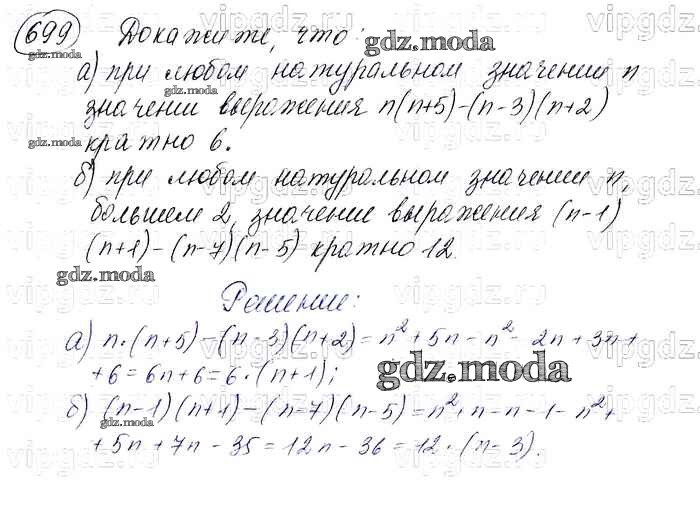 699 Докажите, что:
а) при любом натуральном значении n
значении выражения n(n+5)-(n-3)(n+2)
кратно 6.
б) при любом натуральном значении n,
большем 2, значение выражения (n-1)
(n+1)-(n-7)(n-5) кратно 12.
Решение:
а) n·(n+5)-(n-3)(n+2)=n²+5n-n²-2n+3n+
+6=6n+6=6·(n+1);
б) (n-1)(n+1)-(n-7)(n-5)=n²+n-n-1-n²+
+5n+7n-35=12n-36=12·(n-3).
gdz.moda
gdz.moda
gdz.moda
gdz.moda
gdz.moda
gdz.moda
vipgdz